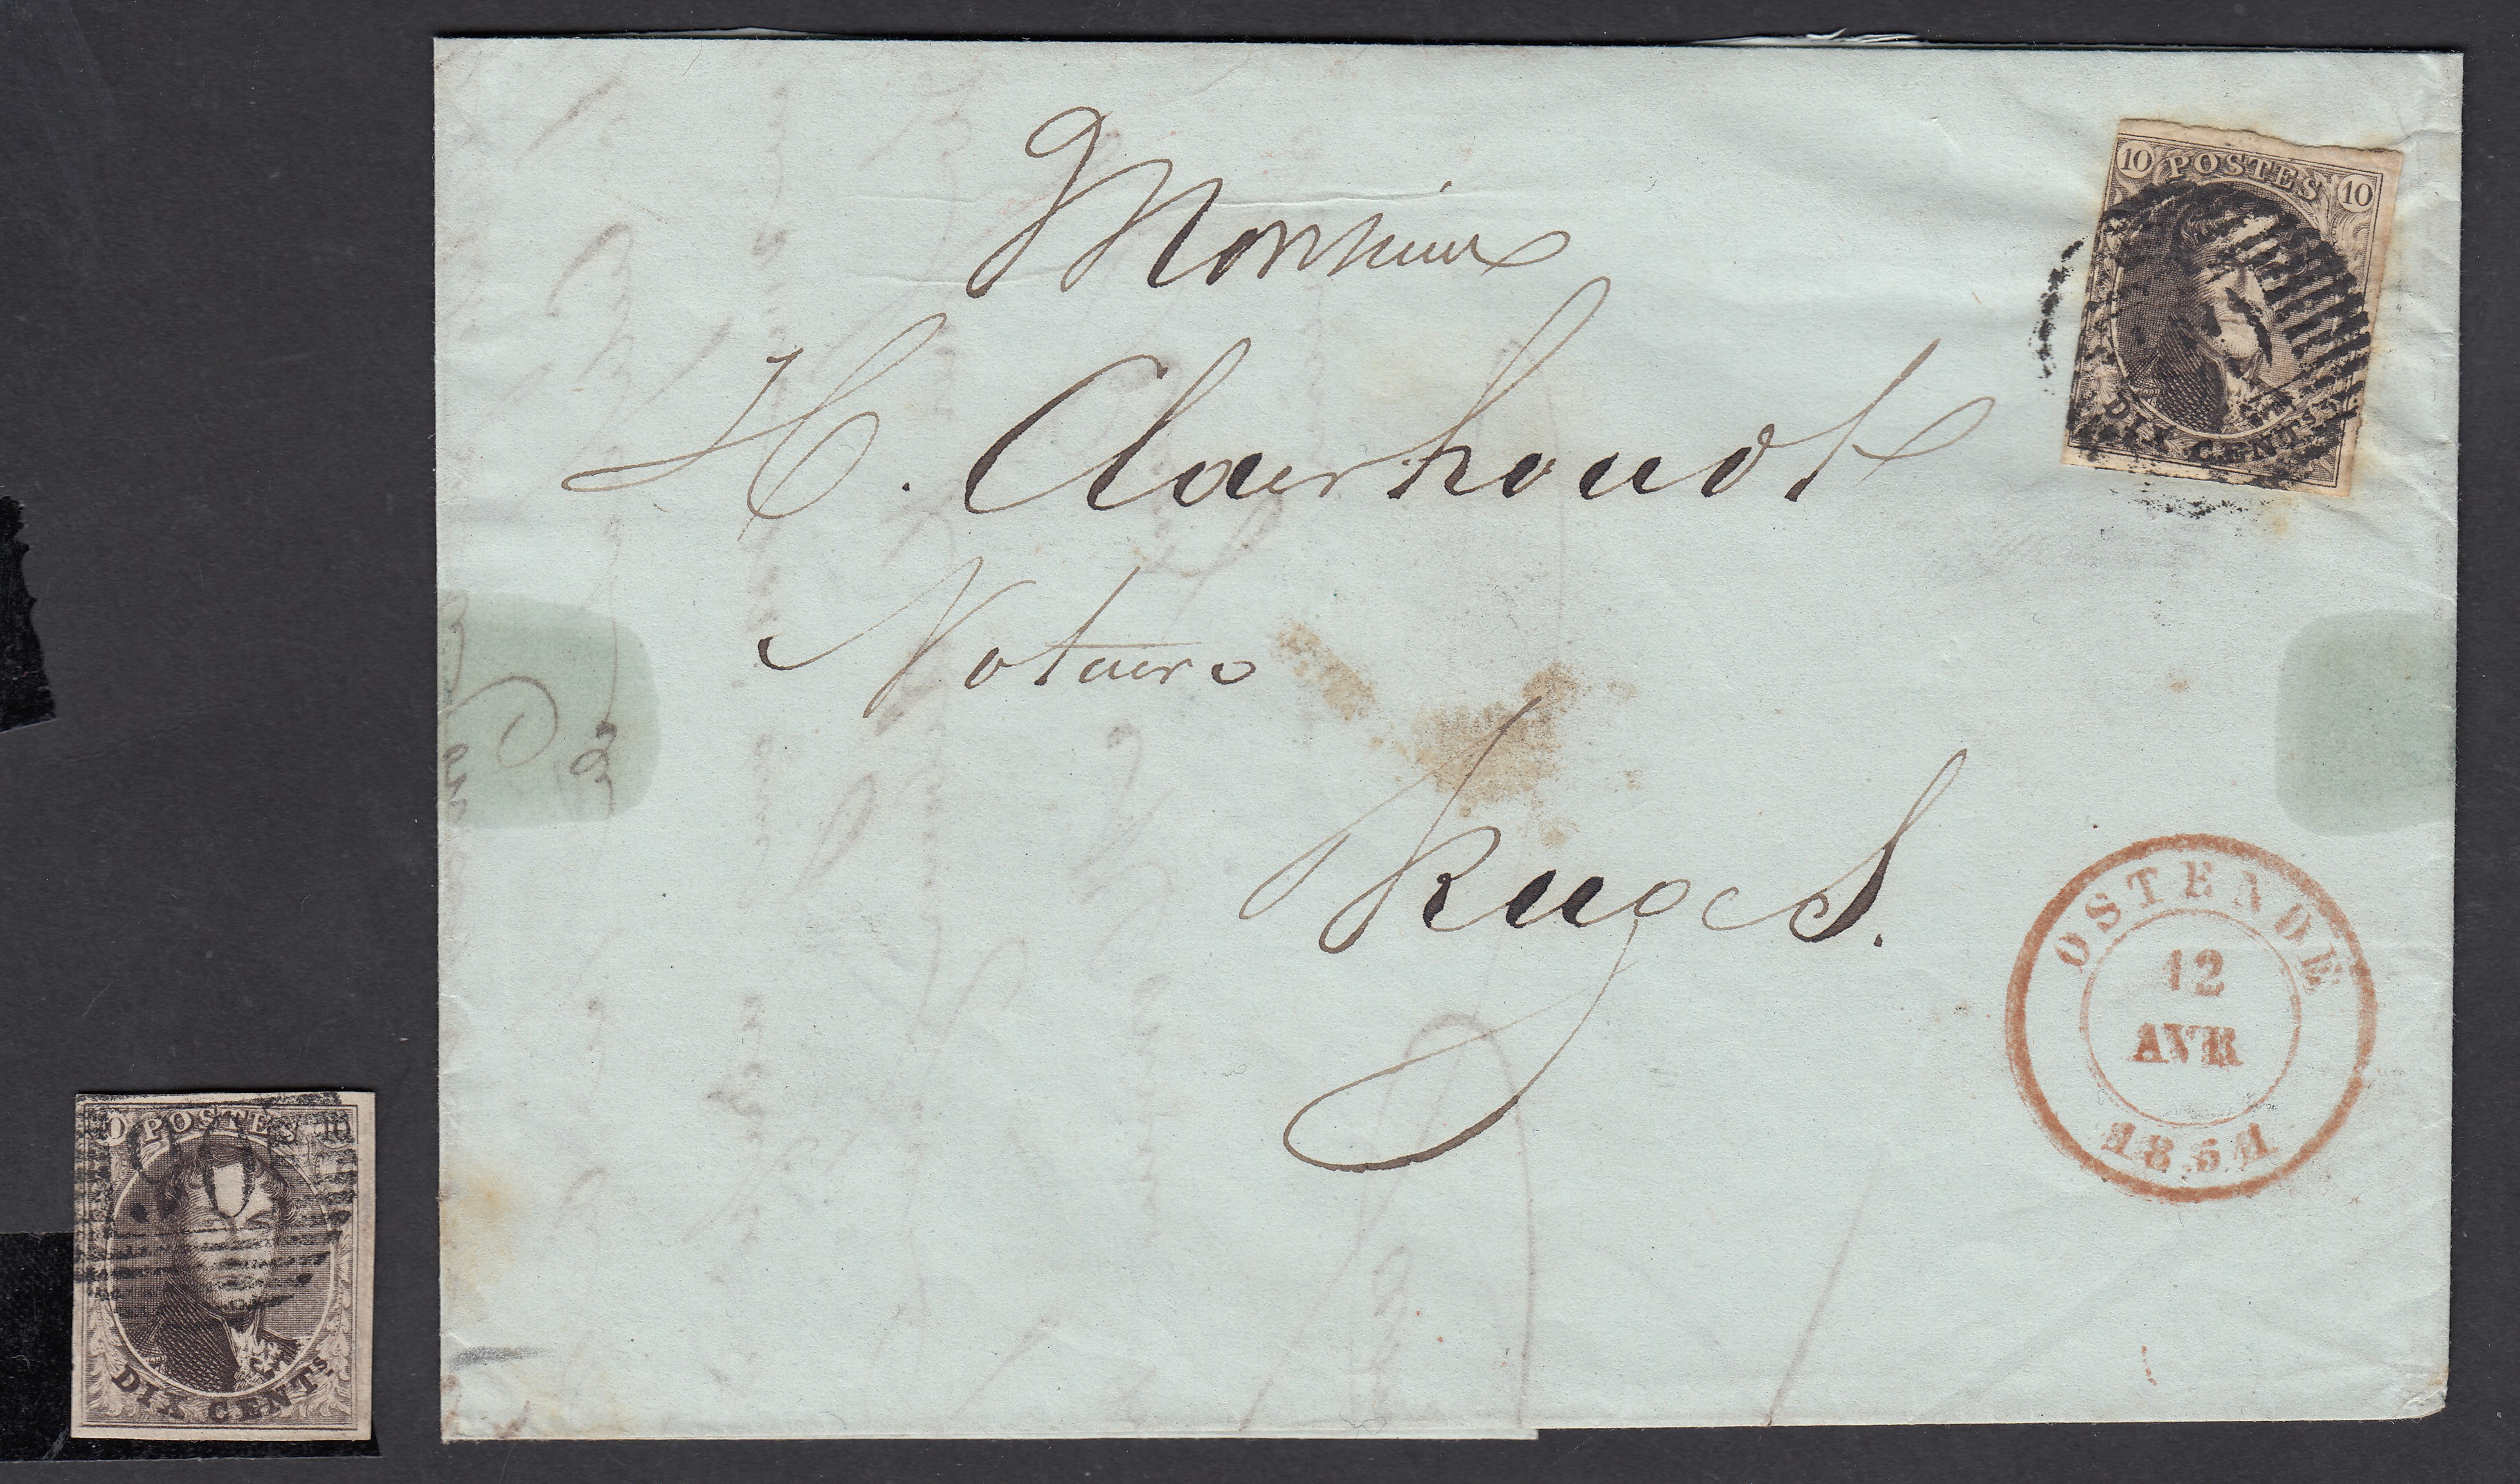 Monsieur
H. Claerhoudt
Notaire
Bruges.
10 POSTES 10
DIX CENTS
OSTENDE
12
AVR
1851
POSTES 10
DIX CENTS.